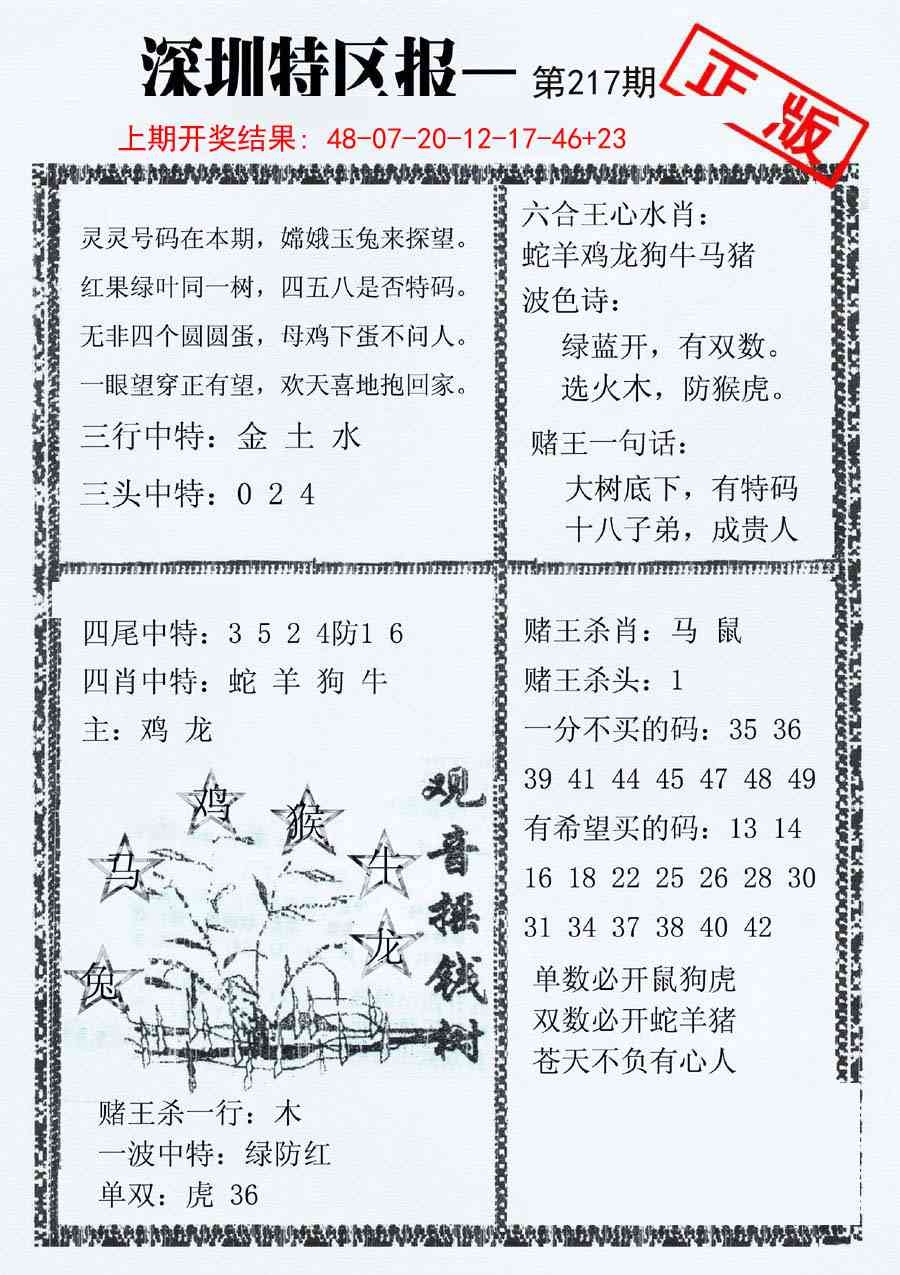 深圳特区报—
第217期
正版
上期开奖结果：48-07-20-12-17-46+23
灵灵号码在本期，嫦娥玉兔来探望。
红果绿叶同一树，四五八是否特码。
无非四个圆圆蛋，母鸡下蛋不问人。
一眼望穿正有望，欢天喜地抱回家。
三行中特：金 土 水
三头中特：0 2 4
六合王心水肖：
蛇羊鸡龙狗牛马猪
波色诗：
绿蓝开，有双数。
选火木，防猴虎。
赌王一句话：
大树底下，有特码
十八子弟，成贵人
四尾中特：3 5 2 4防1 6
四肖中特：蛇 羊 狗 牛
主：鸡 龙
鸡
猴
马
牛
龙
兔
观音摇钱树
赌王杀一行：木
一波中特：绿防红
单双：虎 36
赌王杀肖：马 鼠
赌王杀头：1
一分不买的码：35 36
39 41 44 45 47 48 49
有希望买的码：13 14
16 18 22 25 26 28 30
31 34 37 38 40 42
单数必开鼠狗虎
双数必开蛇羊猪
苍天不负有心人